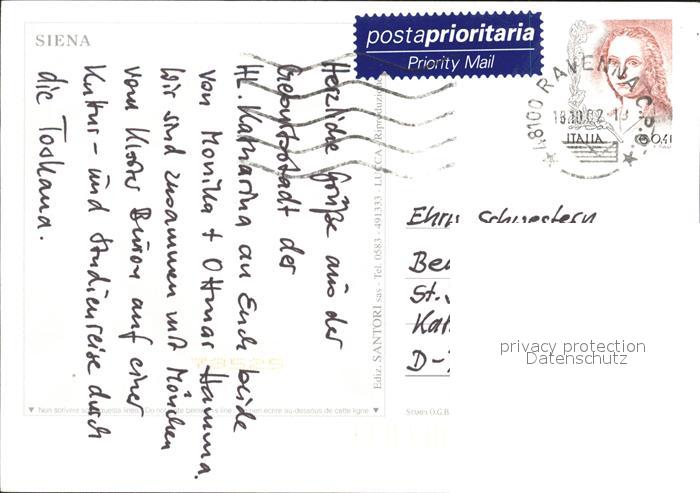 SIENA
Herzliche Grüße aus der
Geburtsstadt der
Hl. Katharina an Euch beide
von Monika + Ottmar Hamma.
Wir sind zusammen mit Mönchen
vom Kloster Beuron auf einer
Kultur- und Studienreise durch
die Toskana.
postaprioritaria
Priority Mail
48100 RAVENNA C.P.O.
18.10.02 18
ITALIA
0,41
Ediz. SANTORI sas - Tel. 0583 - 491333 - LUCCA - Riproduzione
Ehrw. Schwestern
St.
D-
privacy protection
Datenschutz
Non scrivere sotto questa linea / Do not write below this line / Ne rien écrire au-dessous de cette ligne